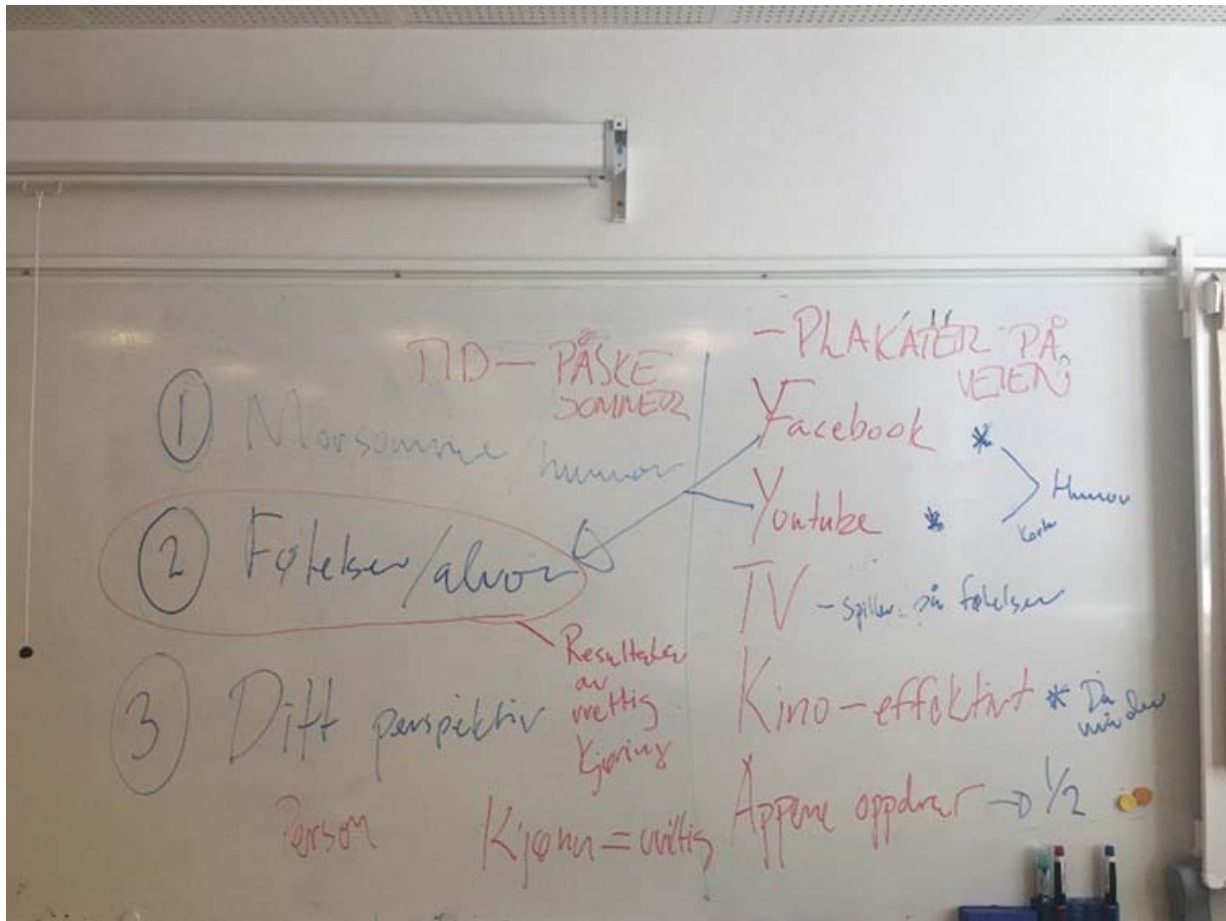 TID — PÅSKE
SOMMER
① Morsomme / humor
② Følelser/alvor
Resultater
av
vettig
Kjøring
③ Ditt perspektiv
Person
Kjønn = viktig
- PLAKATER PÅ
VEIEN
Facebook *
Youtube *
Humor
TV - spiller på følelser
Kino - effektivt *
Appene oppdrar → 1/2